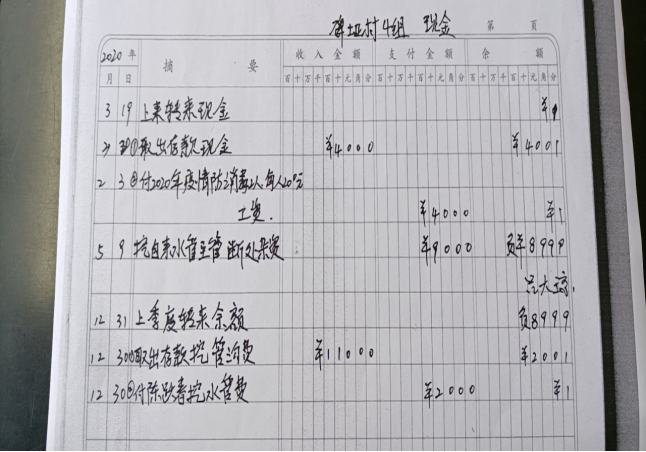 村4组 现金 第 页
2020年 摘 要 收入金额 支付金额 余 额
月 日 百十万千百十元角分 百十万千百十元角分 百十万千百十元角分
3 19 上来转来现金 ¥1
30① 取出存款现金 ¥4000 ¥4001
2 3② 付2020年疫情防消毒2人每人20元
工资 ¥4000 ¥1
5 9 挖自来水管主管断处某费 ¥9000 负¥8999
12 31 上季度转来余额 负8999
12 30① 取出存款挖管沟费 ¥11000 ¥2001
12 30② 付陈跃春挖水管费 ¥2000 ¥1